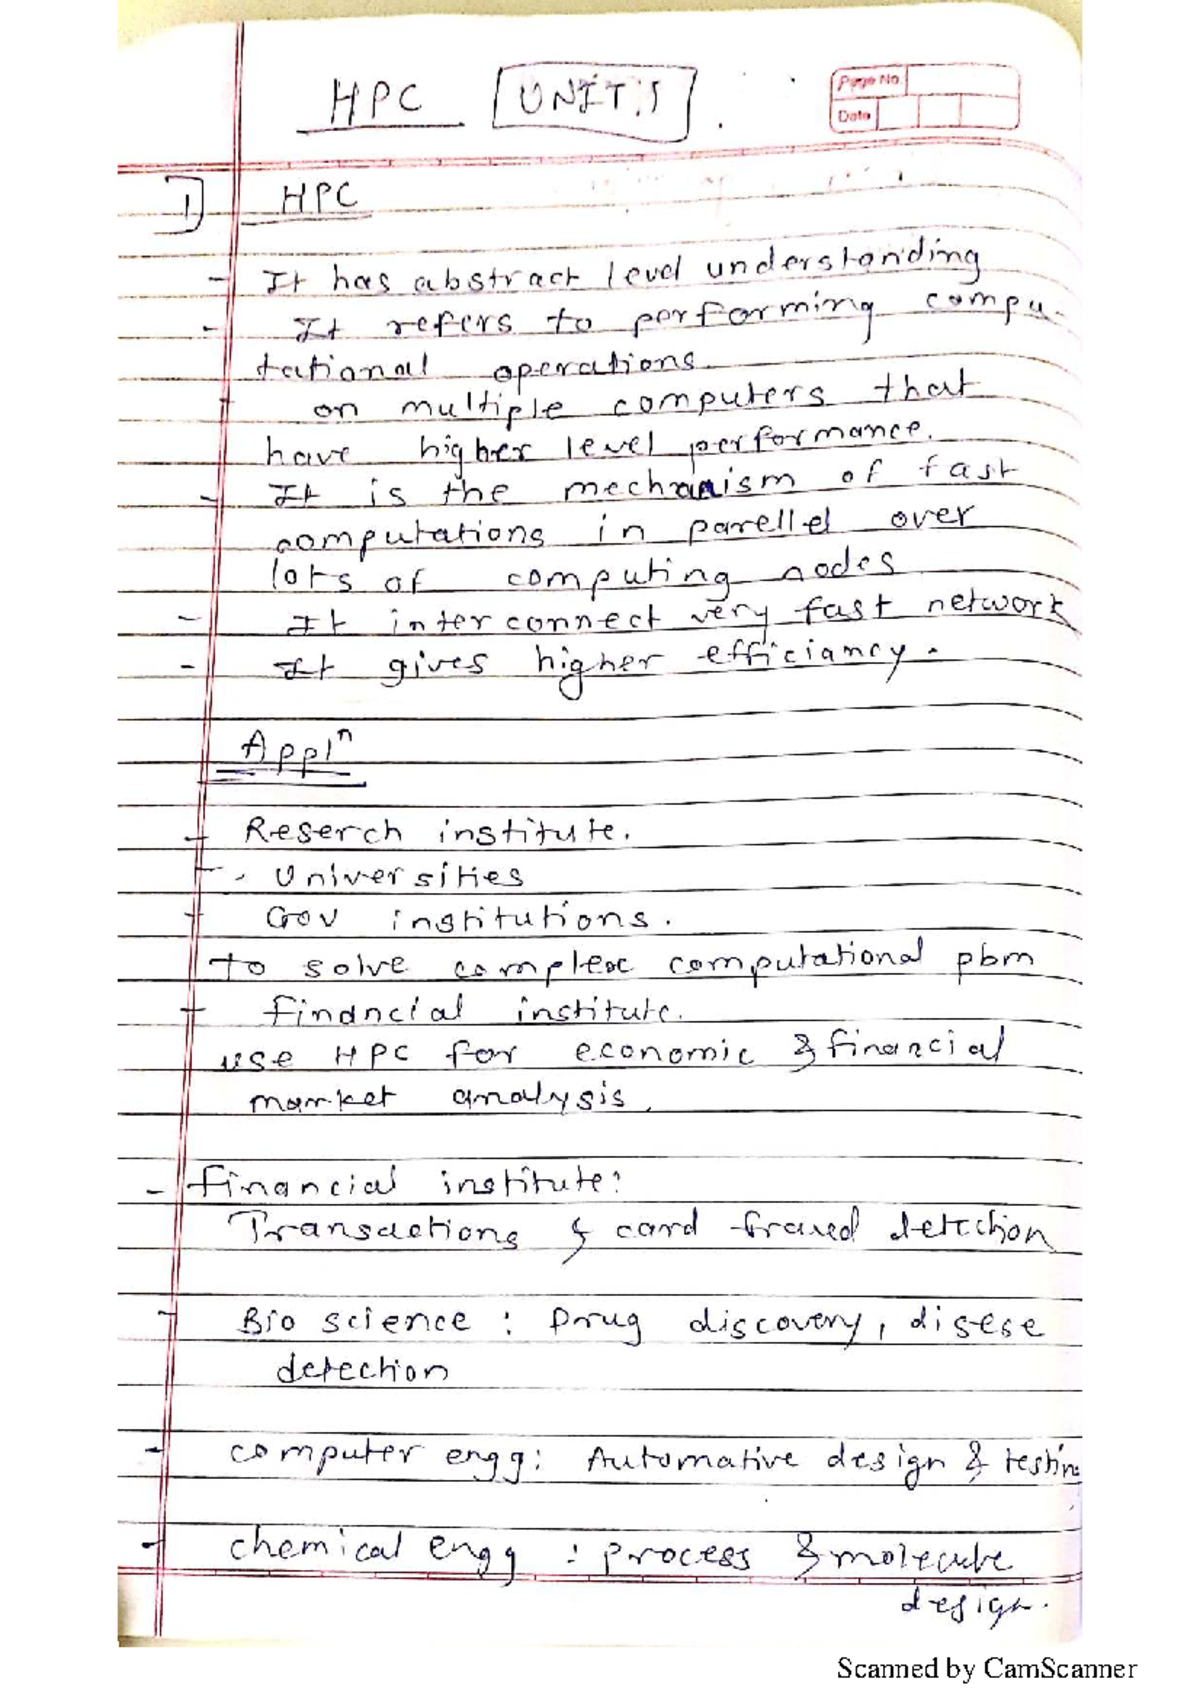 HPC UNIT 1
Page No
Date
1] HPC
- It has abstract level understanding
- It refers to performing compu-
tational operations.
on multiple computers that
have higher level performance.
- It is the mechanism of fast
computations in parellel over
lots of computing nodes
- It interconnect very fast network
- It gives higher efficiancy.
Appl^n
- Reserch institute.
- Universities
- Gov institutions.
to solve complex computational pbm
- financial institute.
use HPC for economic & financial
market analysis.
- financial institute:
Transactions & card fraued detection
- Bio science : Drug discovery, disese
detection
- computer engg: Automative design & testin
- chemical engg : process & molecule
design.
Scanned by CamScanner